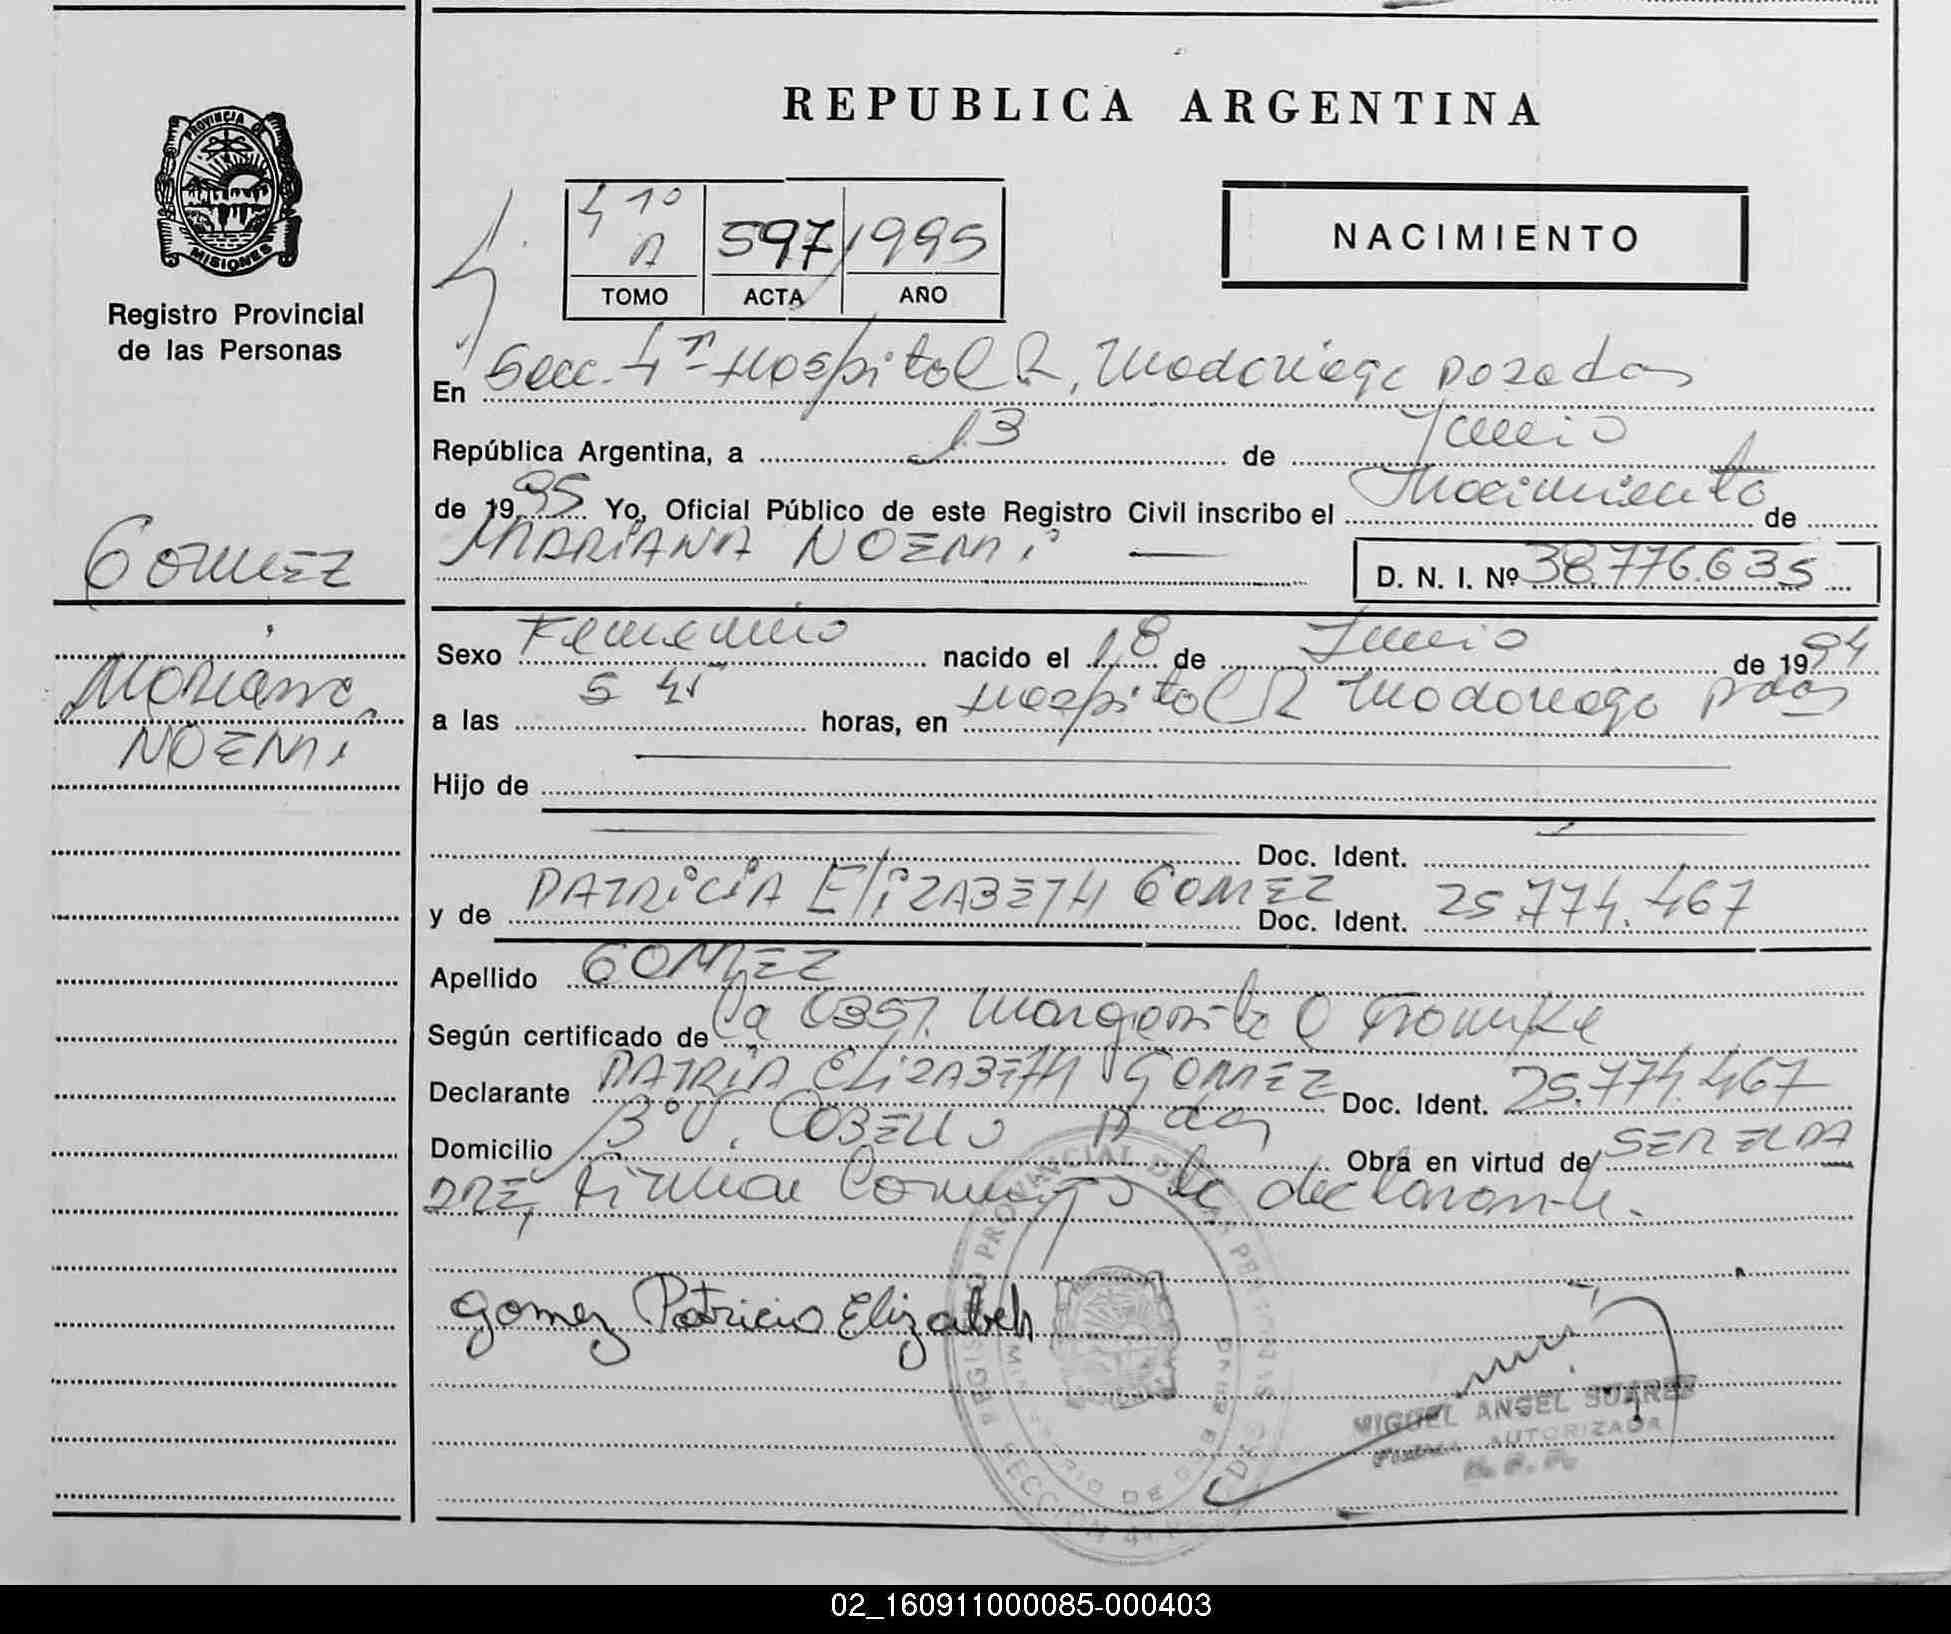 REPUBLICA ARGENTINA
PROVINCIA DE MISIONES
Registro Provincial
de las Personas
4 1º
A 597 1995
TOMO ACTA AÑO
NACIMIENTO
En Secc. 4ª Hospital R. Madariaga Posadas
República Argentina, a 13 de Junio
de 1995 Yo, Oficial Público de este Registro Civil inscribo el Nacimiento de
MARIANA NOEMI
D. N. I. Nº 38.776.635
GOMEZ
Mariana
NOEMI
Sexo Femenino nacido el 18 de Junio de 1994
a las 5 45 horas, en Hospital R Madariaga Pdas
Hijo de
Doc. Ident.
y de PATRICIA ElizABETH GOMEZ Doc. Ident. 25.774.467
Apellido GOMEZ
Según certificado de la Obst. Margarita Q
Declarante PATRIA ELIZABETH GOMEZ Doc. Ident. 25.774.467
Domicilio Bº V. COBELLO Pdas Obra en virtud de SER ELDA
DRE, firma Conmigo la declarante.
gomez Patricia Elizabeh
REGISTRO PROVINCIAL DE LAS PERSONAS
MINISTERIO DE GOBIERNO
MIGUEL ANGEL SUAREZ
FIRMA AUTORIZADA
R. P. P.
02_160911000085-000403